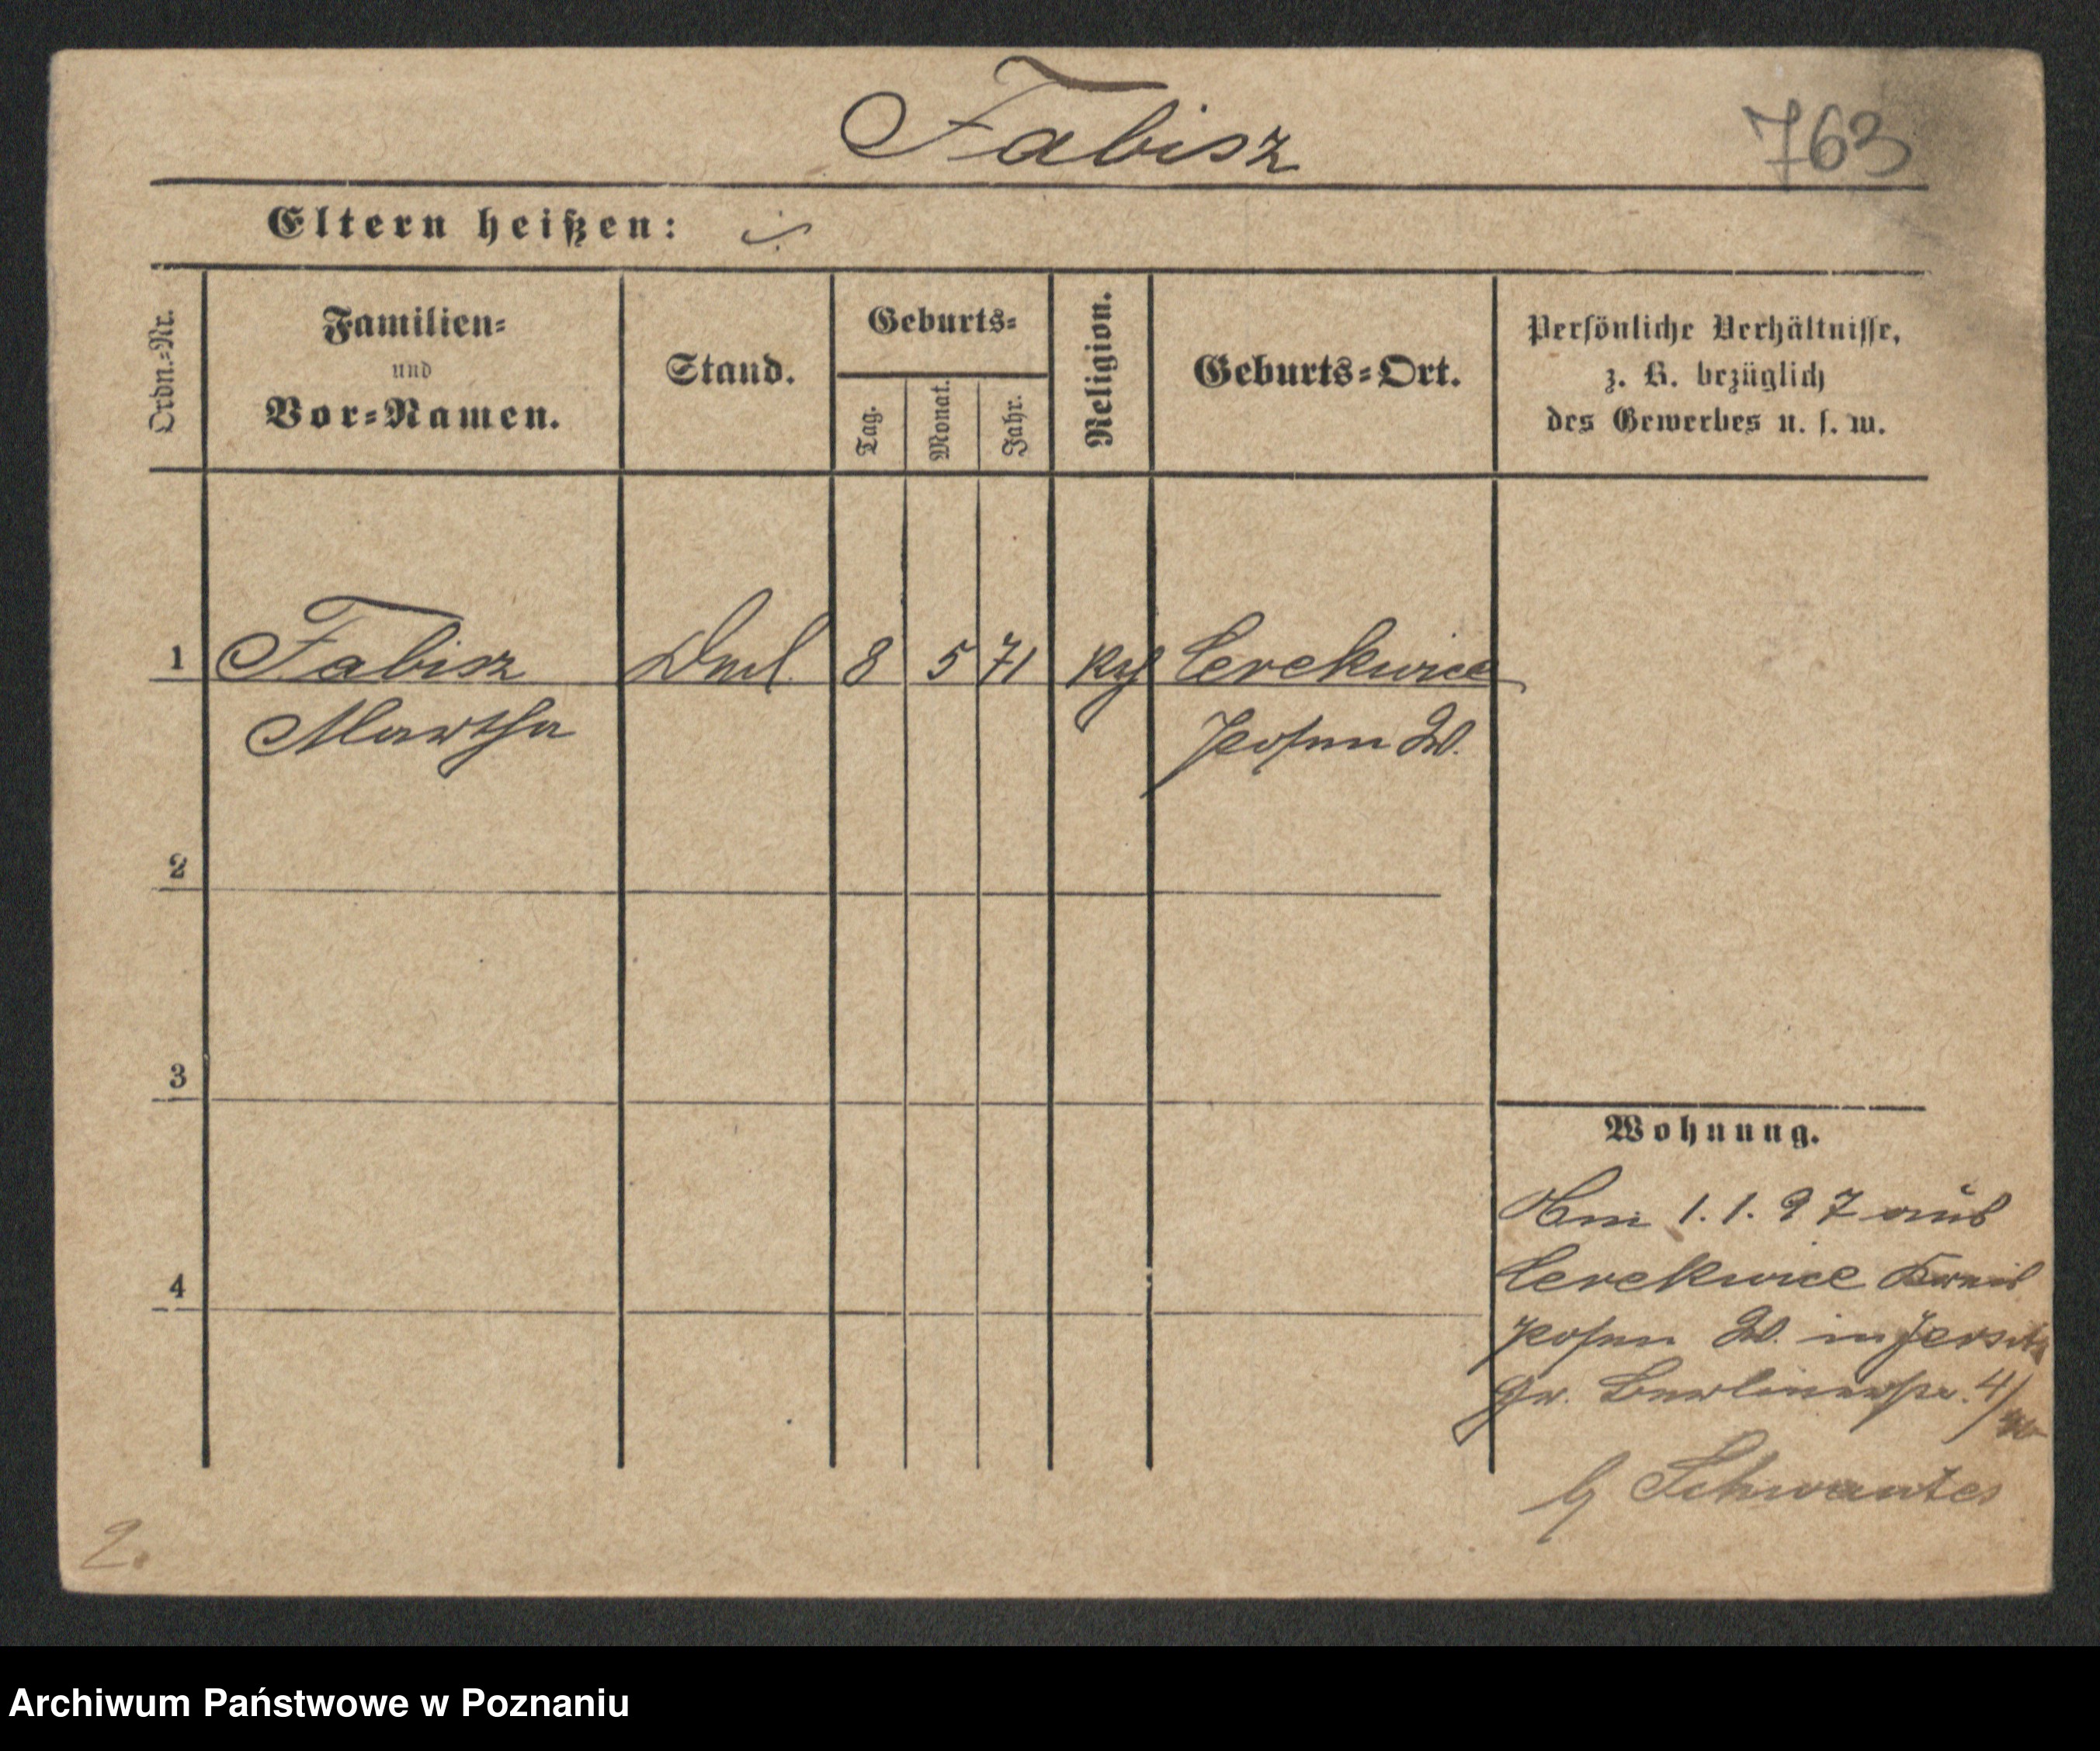 Fabisz
763
Eltern heißen:
Ordn.=Nr.
Familien=
und
Vor=Namen.
Stand.
Geburts=
Tag.
Monat.
Jahr.
Religion.
Geburts=Ort.
Persönliche Verhältnisse,
z. B. bezüglich
des Gewerbes u. s. w.
1 Fabisz 8 5 71 kath Cerekwice
Martha Posen W.
2
3
4
Wohnung.
Am 1. 1. 97 aus
Cerekwice Kreis
Posen W. in Jersitz
Gr. Berlinerstr. 4/
b/ Schwantes
2.
Archiwum Państwowe w Poznaniu